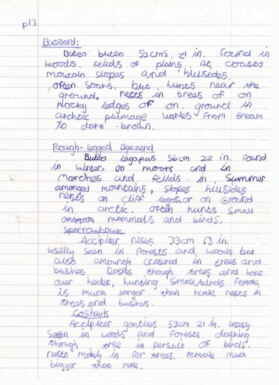 p12
Buzzard:
Buteo buteo 52cms, 21 in. found in
woods, fields or plains, as
mountain slopes and hillsides.
often soars, but hunts near the
ground, nests in trees or on
rocky ledges or on ground in
arctic plumage varies from cream
to dark-brown.
Rough-legged Buzzard
Buteo lagopus 56cm 22 in. found
in winter on moors and in
marshes and fields in summer
amongst mountains, slopes hillsides
nests on cliff or on ground
in arctic, often hunts small
mammals and birds.
Sparrowhawk
Accipter nisus 33cm 13 in.
usually seen in forests and woods but
also around in trees and
bushes trees and
over hedges, hunting small birds female
is much larger than male nests in
trees and bushes.
Goshawk
Accipter gentilis 53cm 21 in.
in woods and forests dashing
through trees in pursuit of birds.
nests mainly in fir trees female much
bigger than male.